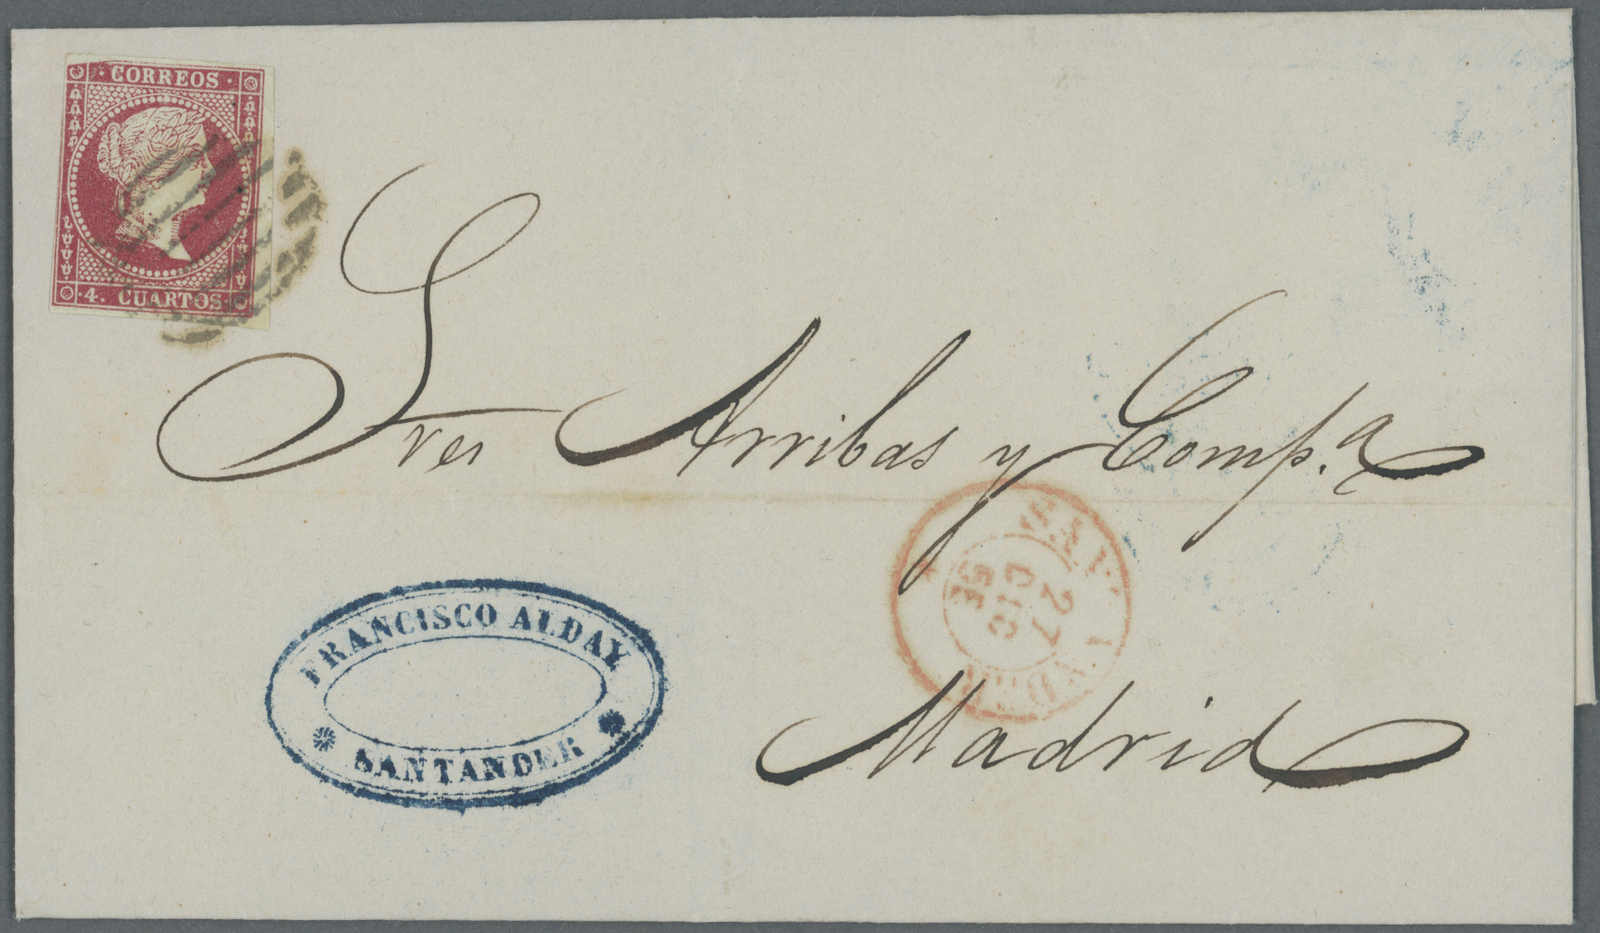 CORREOS
4. CUARTOS.
Sres Arribas y Comp.ª
27
DIC
Madrid
FRANCISCO ALDAY
SANTANDER